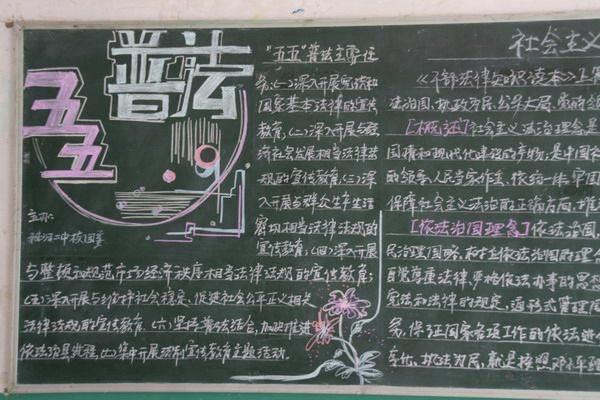 五五
普法
主办:
二中校团委
"五五"普法主要任
务:(一)深入开展宪法和
国家基本法律的宣传
教育,(二)深入开展与经
济社会发展相关法律法
规的宣传教育,(三)深入
开展与群众生产生活
密切相关法律法规的
宣传教育,(四)深入开展
与整顿和规范市场经济秩序相关法律法规的宣传教育;
(五)深入开展与维护社会稳定、促进社会公平正义相关
法律法规的宣传教育,(六)坚持普法结合,加快推进
依法治县进程,(七)集中开展法制宣传教育主题活动。
社会主义
法律知识读本》
法治国、执政为民、公平大局、党的领
[概述]社会主义法治理念是
国情和现代化建设的产物,是中国
的领导、人民当家作主、依法
保障社会主义法治的正确方向,推
[依法治国理念]依法治国,
民治理国家,树立依法治国的理念
自觉尊重法律,严格依法办事的思想
宪法和法律的规定,通形式管理国
务,保证国家各项工作的依法进
执法为民,就是按照邓小平理